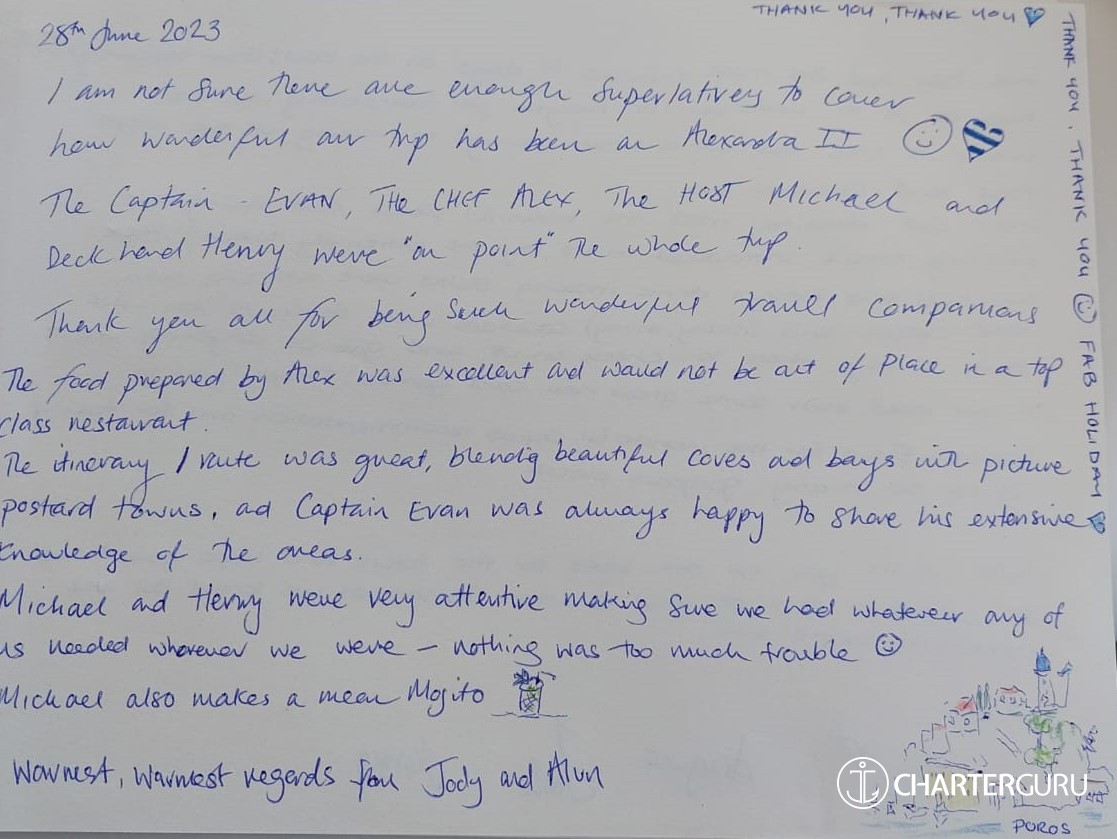 THANK YOU, THANK YOU
28th June 2023
I am not sure there are enough superlatives to cover
how wonderful our trip has been on Alexandra II
The Captain - EVAN, THE CHEF ALEX, The HOST Michael and
Deck hand Henry were "on point" the whole trip.
Thank you all for being such wonderful travel companions
The food prepared by Alex was excellent and would not be out of place in a top
class restaurant.
The itinerary / route was great, blending beautiful coves and bays with picture
postcard towns, and Captain Evan was always happy to share his extensive
knowledge of the areas.
Michael and Henry were very attentive making sure we had whatever any of
us needed wherever we were – nothing was too much trouble
Michael also makes a mean Mojito
Warmest, warmest regards from Jody and Alun
THANK YOU. THANK YOU FAB HOLIDAY
CHARTERGURU
POROS